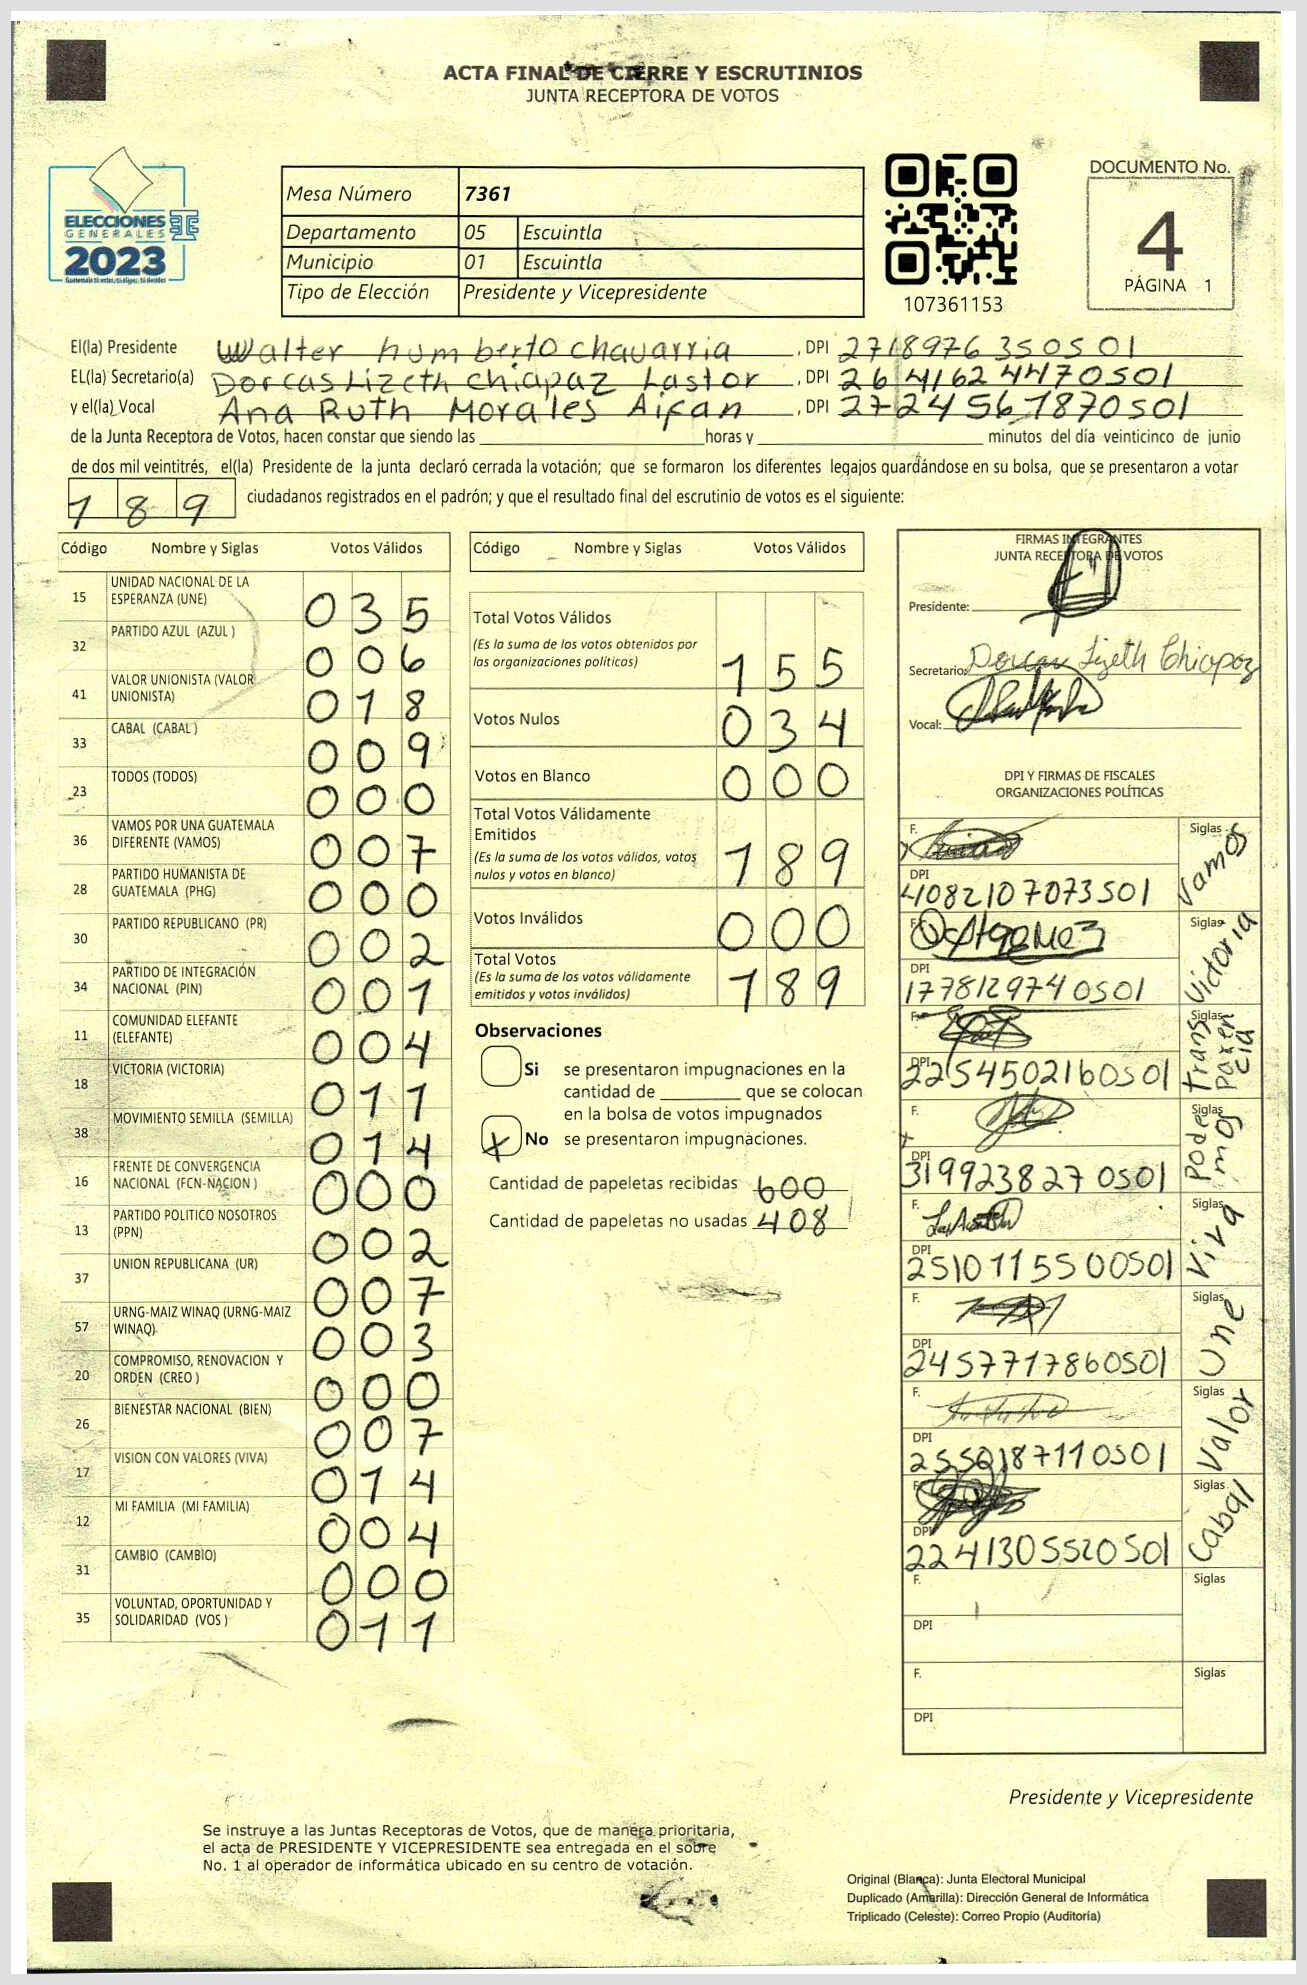 ACTA FINAL DE CIERRE Y ESCRUTINIOS
JUNTA RECEPTORA DE VOTOS
ELECCIONES
GENERALES
2023
Mesa Número 7361
Departamento 05 Escuintla
Municipio 01 Escuintla
Tipo de Elección Presidente y Vicepresidente
107361153
DOCUMENTO No.
4
PÁGINA 1
El(la) Presidente Walter humberto chavarria, DPI 2718976350501
EL(la) Secretario(a) Dorcas Lizeth Chiapaz Lastor, DPI 2641624470501
y el(la) Vocal Ana Ruth Morales Aifan, DPI 2724561870501
de la Junta Receptora de Votos, hacen constar que siendo las horas y minutos del día veinticinco de junio
de dos mil veintitrés, el(la) Presidente de la junta declaró cerrada la votación; que se formaron los diferentes legajos guardándose en su bolsa, que se presentaron a votar
189 ciudadanos registrados en el padrón; y que el resultado final del escrutinio de votos es el siguiente:
Código Nombre y Siglas Votos Válidos
15 UNIDAD NACIONAL DE LA ESPERANZA (UNE) 035
32 PARTIDO AZUL (AZUL ) 006
41 VALOR UNIONISTA (VALOR UNIONISTA) 018
33 CABAL (CABAL ) 009
23 TODOS (TODOS) 000
36 VAMOS POR UNA GUATEMALA DIFERENTE (VAMOS) 007
28 PARTIDO HUMANISTA DE GUATEMALA (PHG) 000
30 PARTIDO REPUBLICANO (PR) 002
34 PARTIDO DE INTEGRACIÓN NACIONAL (PIN) 001
11 COMUNIDAD ELEFANTE (ELEFANTE) 004
18 VICTORIA (VICTORIA) 011
38 MOVIMIENTO SEMILLA (SEMILLA) 014
16 FRENTE DE CONVERGENCIA NACIONAL (FCN-NACION ) 000
13 PARTIDO POLITICO NOSOTROS (PPN) 002
37 UNION REPUBLICANA (UR) 007
57 URNG-MAIZ WINAQ (URNG-MAIZ WINAQ) 003
20 COMPROMISO, RENOVACION Y ORDEN (CREO ) 000
26 BIENESTAR NACIONAL (BIEN) 007
17 VISION CON VALORES (VIVA) 014
12 MI FAMILIA (MI FAMILIA) 004
31 CAMBIO (CAMBIO) 000
35 VOLUNTAD, OPORTUNIDAD Y SOLIDARIDAD (VOS ) 011
Código Nombre y Siglas Votos Válidos
Total Votos Válidos
(Es la suma de los votos obtenidos por
las organizaciones políticas) 155
Votos Nulos 034
Votos en Blanco 000
Total Votos Válidamente
Emitidos
(Es la suma de los votos válidos, votos
nulos y votos en blanco) 189
Votos Inválidos 000
Total Votos
(Es la suma de los votos válidamente
emitidos y votos inválidos) 189
Observaciones
Si se presentaron impugnaciones en la
cantidad de que se colocan
en la bolsa de votos impugnados
X No se presentaron impugnaciones.
Cantidad de papeletas recibidas 600
Cantidad de papeletas no usadas 408
FIRMAS INTEGRANTES
JUNTA RECEPTORA DE VOTOS
Presidente:
Secretario: Dorcas Lizeth Chiapaz
Vocal:
DPI Y FIRMAS DE FISCALES
ORGANIZACIONES POLÍTICAS
F. Siglas Vamos
DPI 4082107073501
F. Siglas Victoria
DPI 1778129740501
F. Siglas Transparencia
DPI 2254502160501
F. Siglas Podemos
DPI 3199238270501
F. Siglas Viva
DPI 2510115500501
F. Siglas Une
DPI 2457717860501
F. Siglas Valor
DPI 2550187110501
F. Siglas Cabal
DPI 2241305520501
F. Siglas
DPI
F. Siglas
DPI
Presidente y Vicepresidente
Se instruye a las Juntas Receptoras de Votos, que de manera prioritaria,
el acta de PRESIDENTE Y VICEPRESIDENTE sea entregada en el sobre
No. 1 al operador de informática ubicado en su centro de votación.
Original (Blanca): Junta Electoral Municipal
Duplicado (Amarilla): Dirección General de Informática
Triplicado (Celeste): Correo Propio (Auditoría)